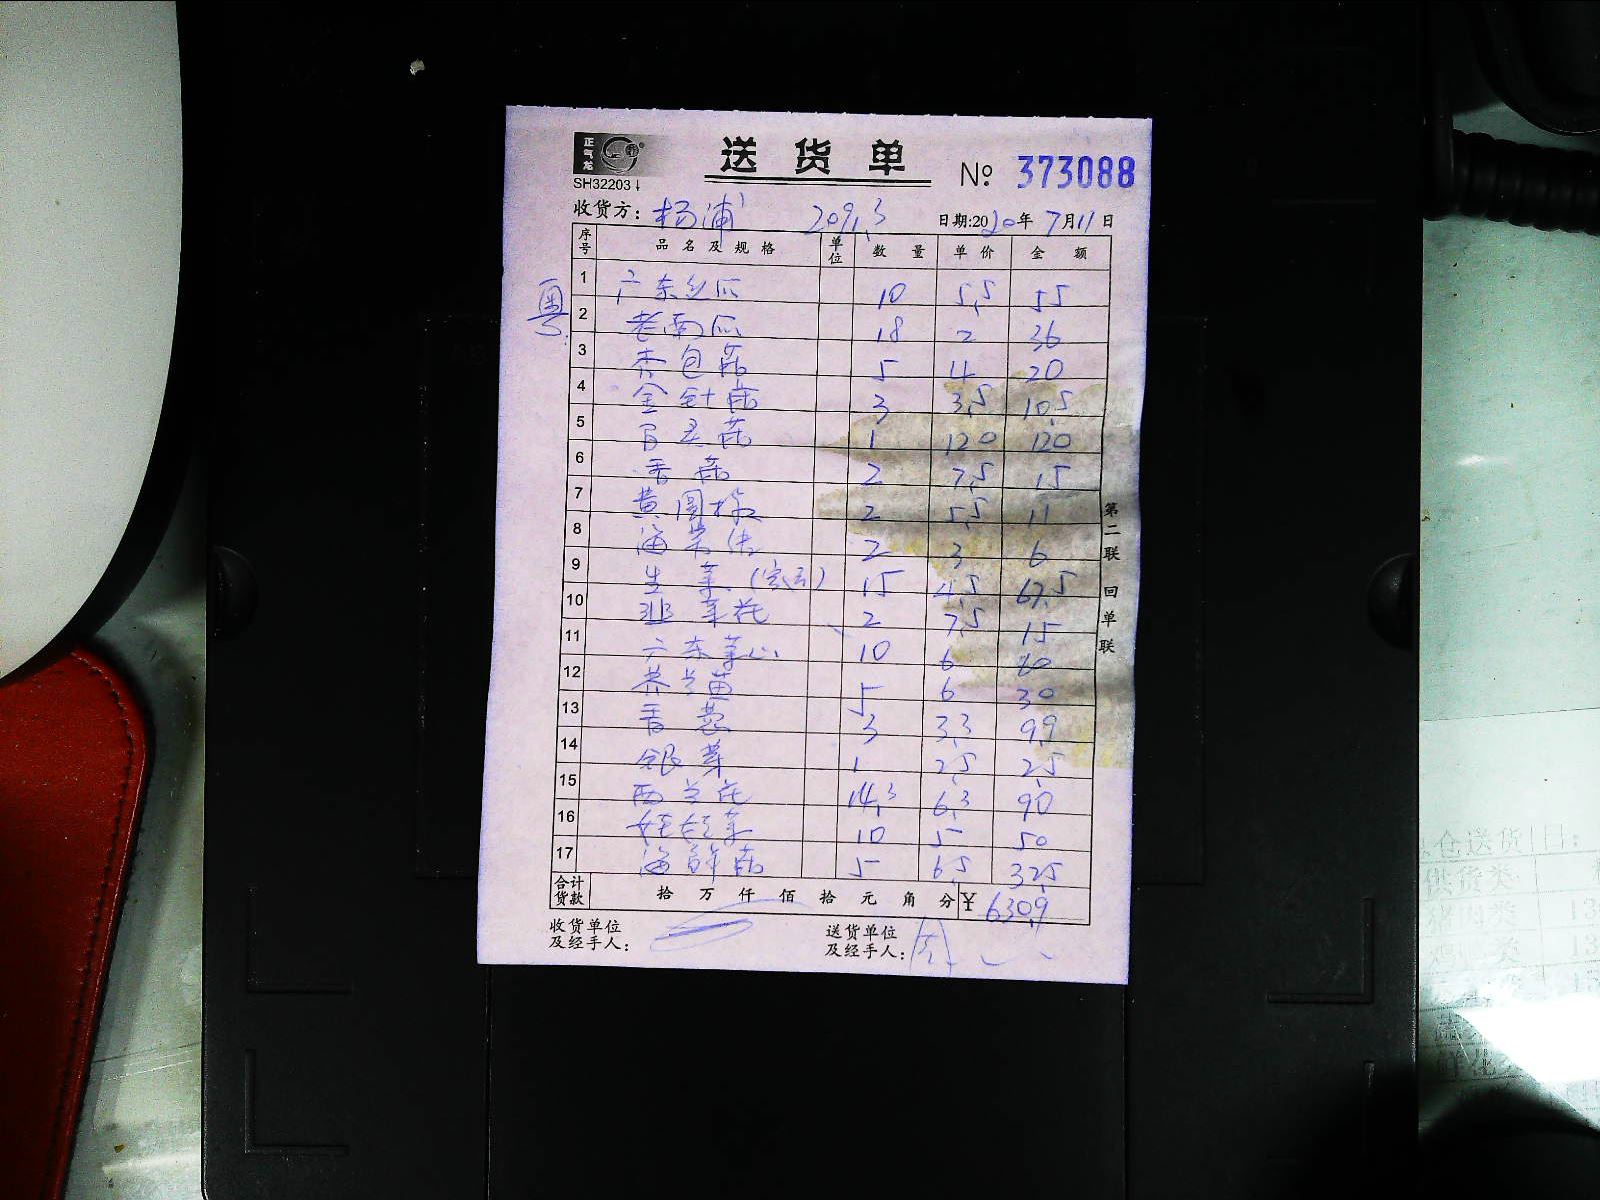 正气龙
送货单
№ 373088
SH32203
收货方: 杨浦 209.3 日期:2020年7月11日
序号 品名及规格 单位 数量 单价 金额
粤
1 广东丝瓜 10 5.5 55
2 老南瓜 18 2 36
3 杏包菇 5 4 20
4 金针菇 3 3.5 10.5
5 百灵菇 1 120 120
6 香菇 2 7.5 15
7 黄圆椒 2 5.5 11
8 海带结 2 3 6
9 生菜 15 4.5 67.5
10 韭菜花 2 7.5 15
11 广东菜心 10 6 60
12 芥兰苗 5 6 30
13 香葱 3 3.3 9.9
14 银芽 1 2.5 2.5
15 西兰花 14.3 6.3 90
16 娃娃菜 10 5 50
17 海鲜菇 5 6.5 32.5
合计货款 拾 万 仟 佰 拾 元 角 分 ¥ 630.9
收货单位及经手人:
送货单位及经手人:
第二联 回单联
仓送货 日:
供货类